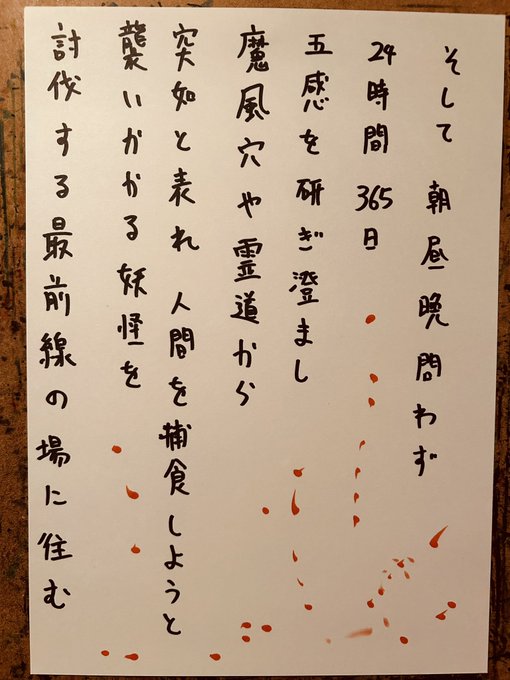 そして 朝昼晩問わず
24時間 365日
五感を研ぎ澄まし
魔風穴や霊道から
突如と表れ 人間を捕食しようと
襲いかかる妖怪を
討伐する最前線の場に住む